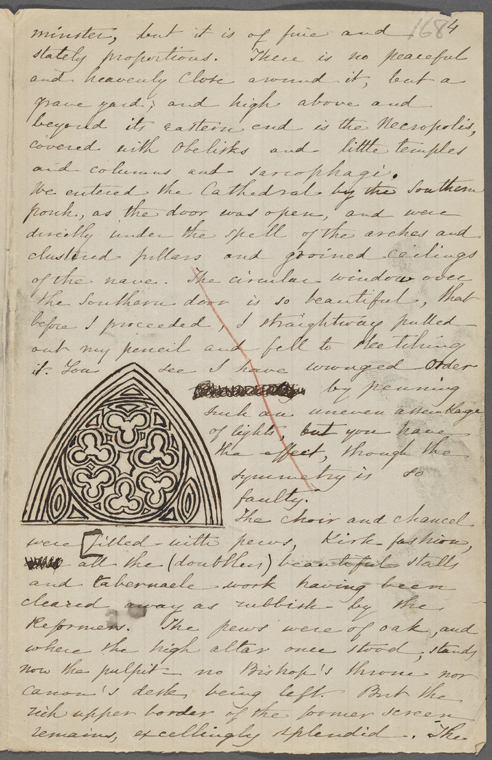 1684
minster, but it is of fine and
stately proportions. There is no peaceful
and heavenly Close around it, but a
grave yard; and high above and
beyond its eastern end is the Necropolis,
covered with Obelisks and little temples
and columns and sarcophagi.
We entered the Cathedral by the Southern
porch, as the door was open, and were
directly under the spell of the arches and
clustered pillars and groined ceilings
of the nave. The circular window over
the Southern door is so beautiful, that
before I proceeded, I straightway pulled
out my pencil and fell to sketching
it. You see I have wronged Order
by penning
such an uneven assemblage
of lights, but you have
the effect, though the
symmetry is so
faulty.
The choir and chancel
were filled with pews, Kirk-fashion,
all the (doubtless) beautiful stalls
and tabernacle work having been
cleared away as rubbish by the
Reformers. The pews were of oak, and
where the high altar once stood, stands
now the pulpit - no Bishop's throne nor
canon's desk, being left. But the
rich upper border of the former screen
remains, excellingly splendid. The